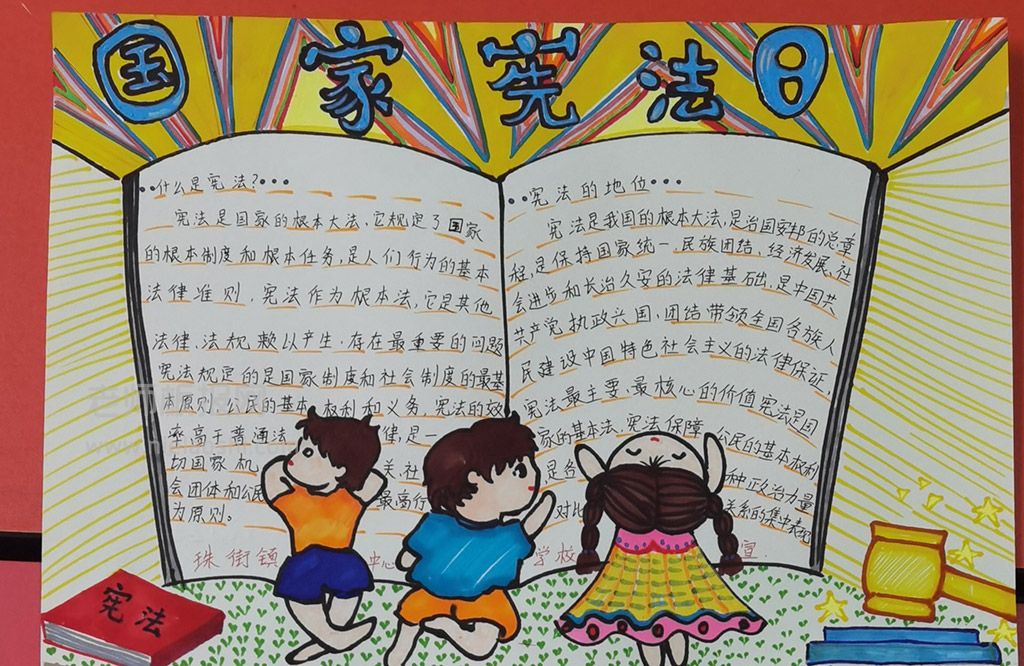 国家宪法日
什么是宪法?
宪法是国家的根本大法,它规定了国家
的根本制度和根本任务,是人们行为的基本
法律准则,宪法作为根本法,它是其他
法律、法规、赖以产生、存在最重要的问题
宪法规定的是国家制度和社会制度的最基
本原则,公民的基本权利和义务,宪法的效
率高于普通法 律,是一
切国家机 关、社
会团体和公民 最高行
为原则。
宪法的地位
宪法是我国的根本大法,是治国安邦的总章
程,是保持国家统一、民族团结、经济发展、社
会进步和长治久安的法律基础,是中国共
共产党执政兴国、团结带领全国各族人
民建设中国特色社会主义的法律保证,
宪法最主要、最核心的价值宪法是国
家的基本法、宪法保障 公民的基本权利
,是各 种政治力量
对比 关系的集中表现
珠街镇 中心 学校 宣
宪法